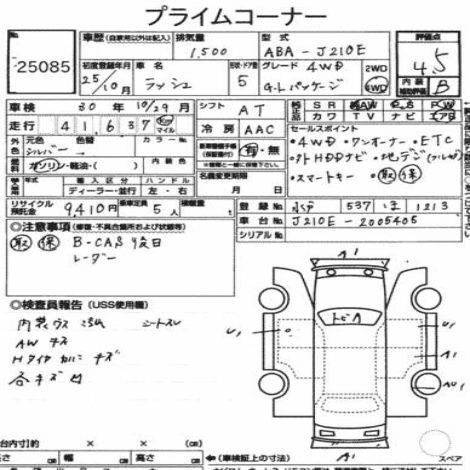 プライムコーナー
No.
25085
車歴 (自家用以外は記入)
排気量
1,500
型式
ABA - J210E
評価点
4.5
初度登録年月
25/10月
車名
ラッシュ
形状・ドア数
5
グレード 4WD
G-Lパッケージ
2WD
4WD
内装補助評価
B
車検 30年 10/29月
シフト AT
S R AW P S P W
カワ T V ナビ エアB
走行 41,637 km マイル
冷房 AAC
セールスポイント
・4WD ・ワンオーナー ・ETC
・外HDDナビ ・地デジ(フルセグ)
・スマートキー 取 保
外色 元色 シルバー 色替 カラーNo.
内装色
新車整備手帳(保証書) 有・無
燃料 ガソリン・軽油・( )
名義変更期限 月 日
年式 輸入区分 ハンドル
ディーラー・並行 左・右
リサイクル預託金 9,410円 乗車定員 5人
登録No. 水戸 537 ほ 1213
車台No. J210E - 2005405
シリアルNo.
◎注意事項 (修復・不具合箇所および状態等)
取 保 B-CAS 後日
レーダー
◎検査員報告 (USS使用欄)
内装ウス汚れ シートスレ
AW キズ
Hタイヤカバーキズ
各キズ凹
A1
トビA
U1
U1
A1
AU1
A1
台内寸約 × ×
長さ cm 幅 cm 高さ cm
(車検証上の寸法)
スペア